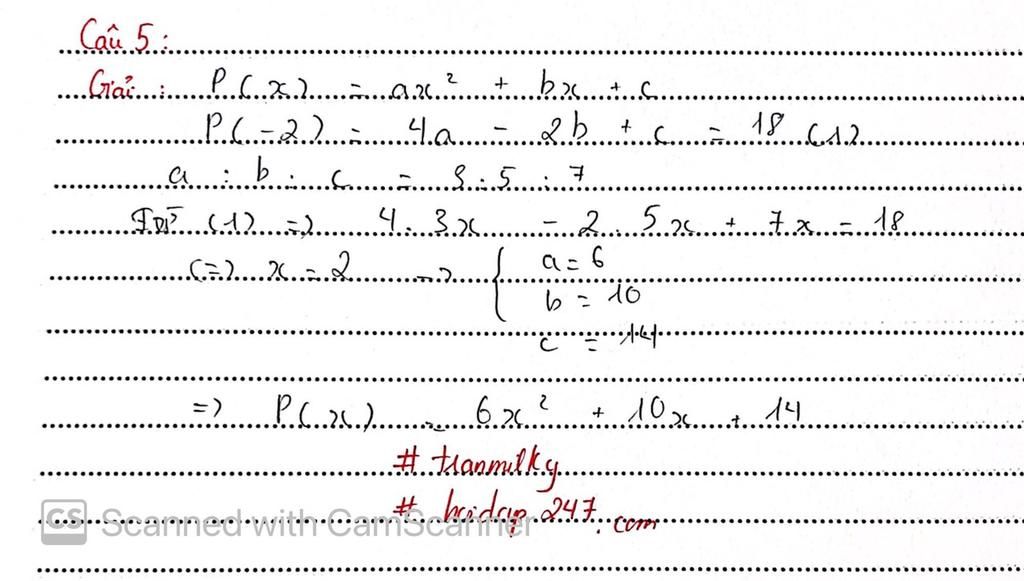 Câu 5:
Giải: P(x) = ax² + bx + c
P(-2) = 4a - 2b + c = 18 (1)
a : b : c = 3 : 5 : 7
Từ (1) => 4.3x - 2.5x + 7x = 18
(=) x = 2 -> { a = 6
b = 10
c = 14
=> P(x) = 6x² + 10x + 14
# tranmilky
# hoidap247.com
CS Scanned with CamScanner